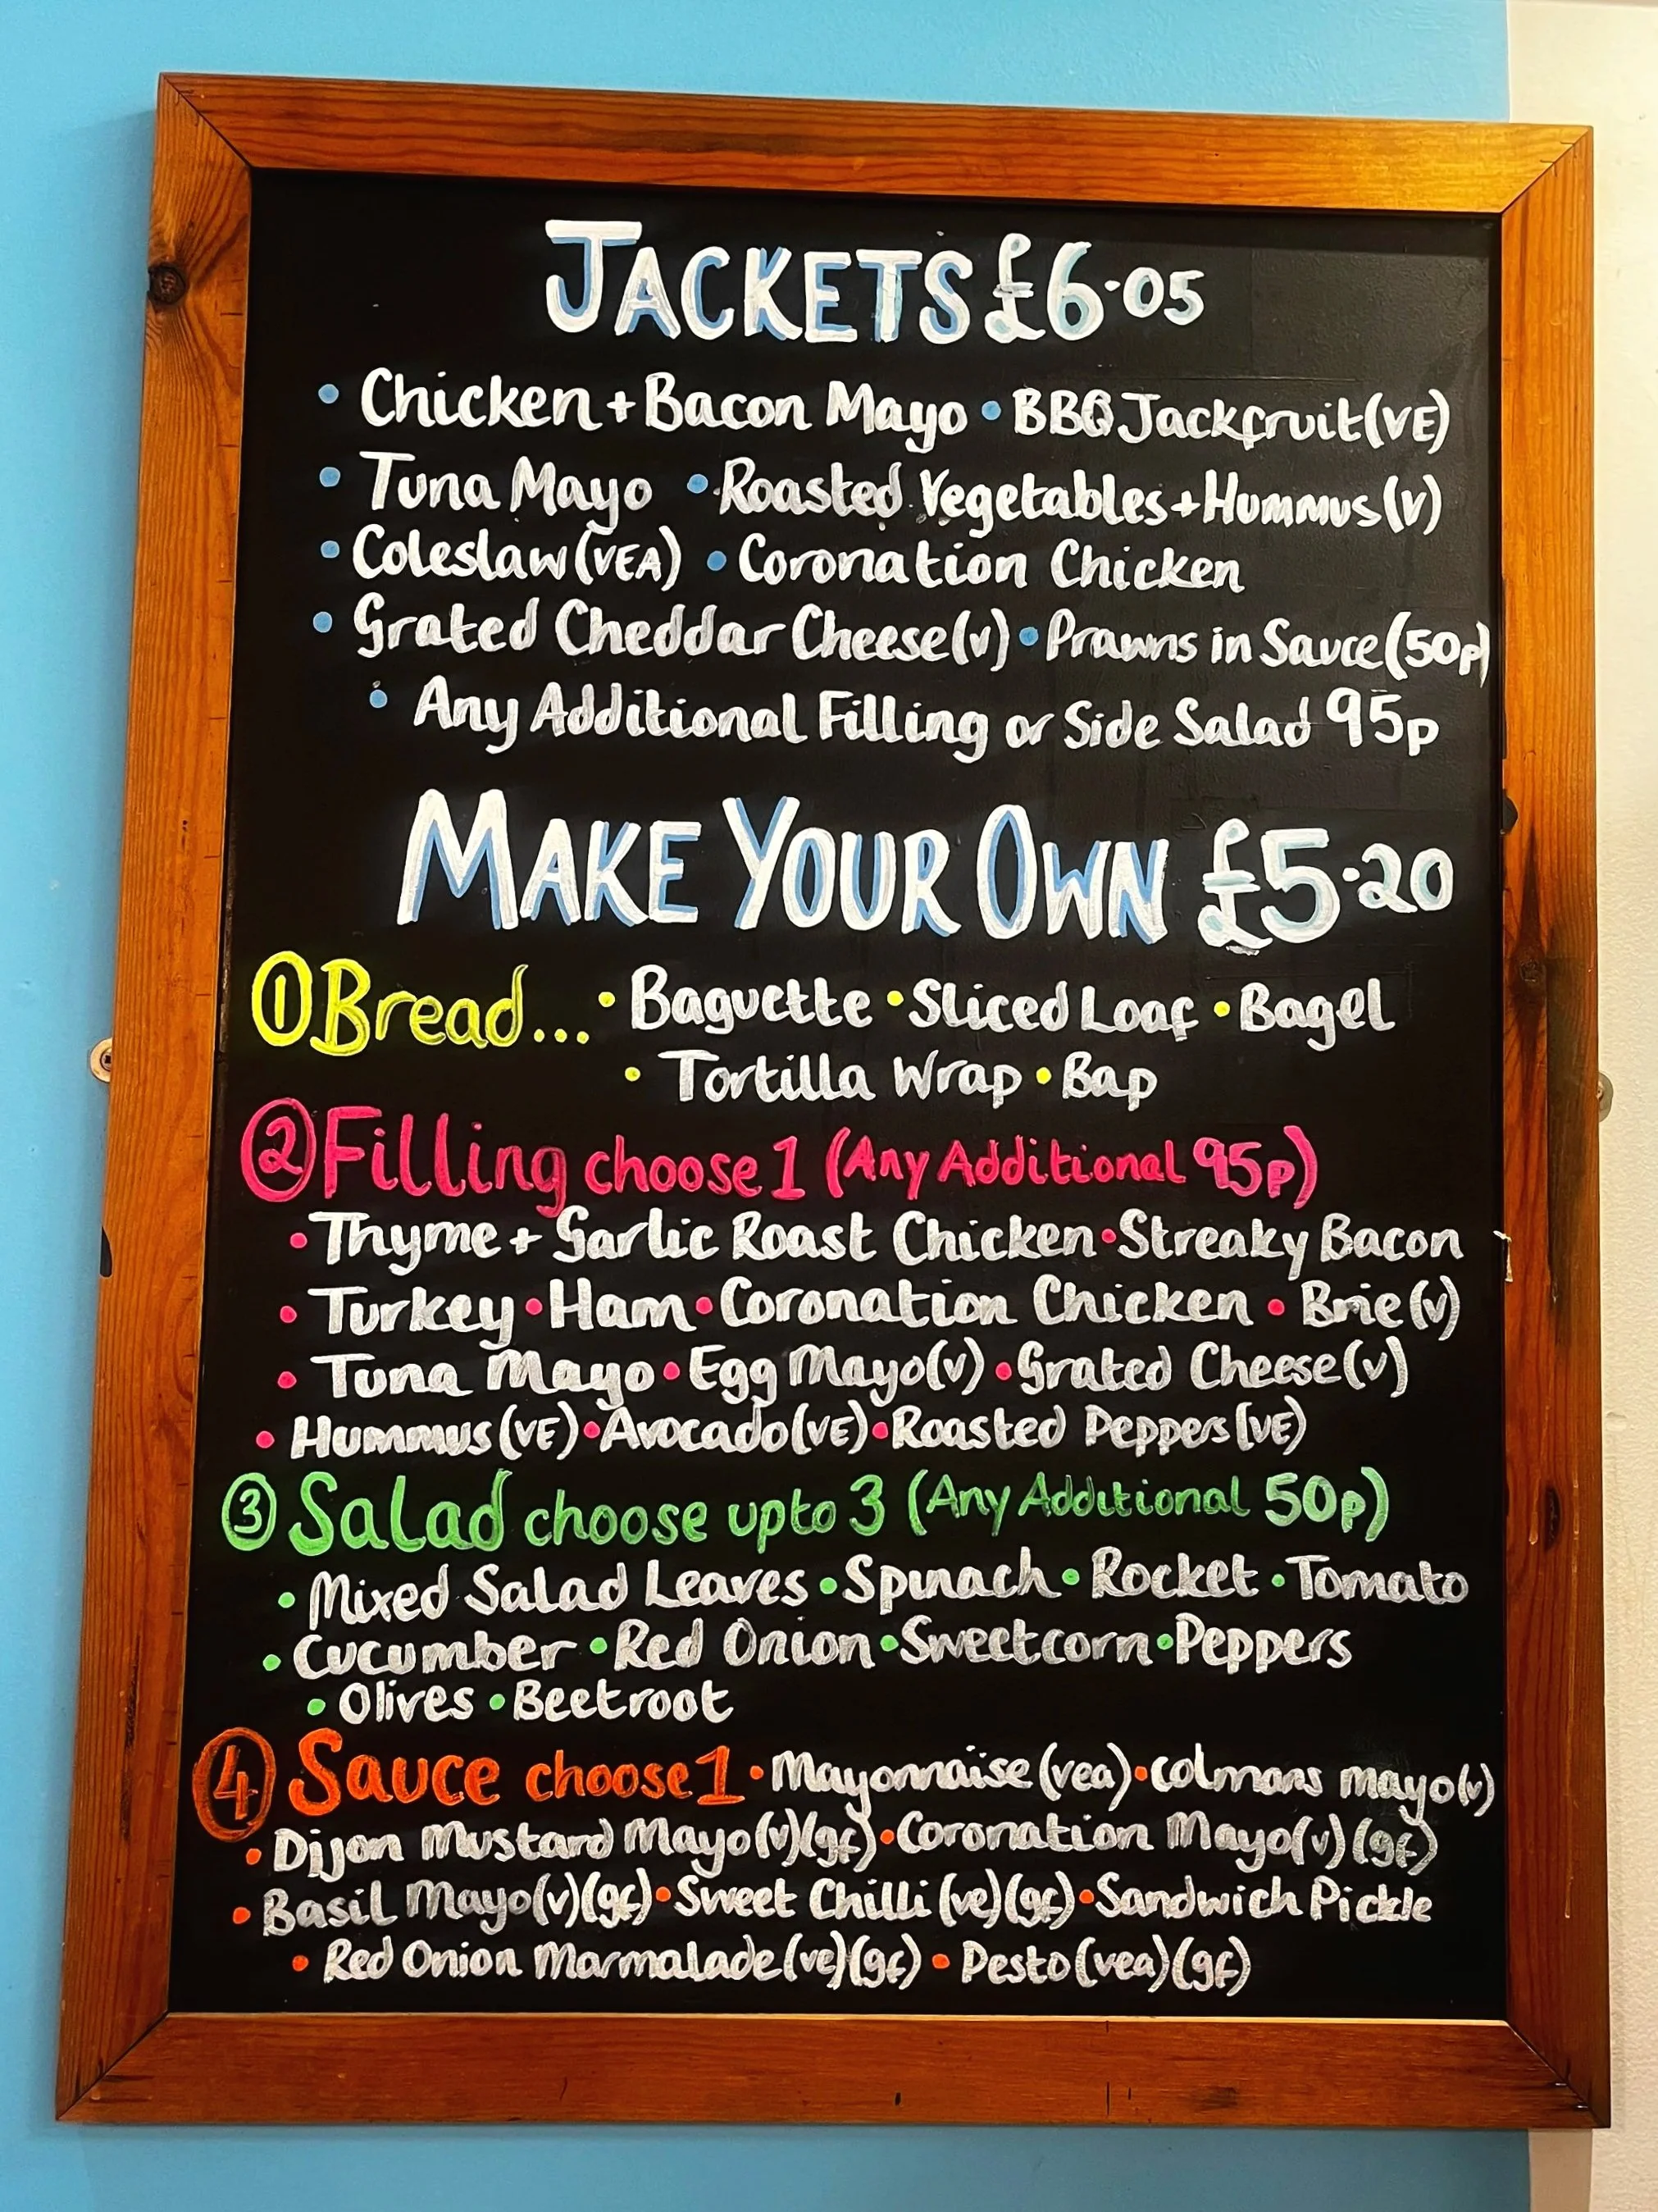 JACKETS £6.05
• Chicken + Bacon Mayo • BBQ Jackfruit (VE)
• Tuna Mayo • Roasted Vegetables + Hummus (V)
• Coleslaw (VEA) • Coronation Chicken
• Grated Cheddar Cheese (v) • Prawns in Sauce (50p)
• Any Additional Filling or Side Salad 95p
MAKE YOUR OWN £5.20
① Bread... • Baguette • Sliced Loaf • Bagel
• Tortilla Wrap • Bap
② Filling choose 1 (Any Additional 95p)
• Thyme + Garlic Roast Chicken • Streaky Bacon
• Turkey • Ham • Coronation Chicken • Brie (v)
• Tuna Mayo • Egg Mayo (v) • Grated Cheese (v)
• Hummus (VE) • Avocado (VE) • Roasted Peppers (VE)
③ Salad choose upto 3 (Any Additional 50p)
• Mixed Salad Leaves • Spinach • Rocket • Tomato
• Cucumber • Red Onion • Sweetcorn • Peppers
• Olives • Beetroot
④ Sauce choose 1 • Mayonnaise (vea) • Colmans mayo (v)
• Dijon Mustard Mayo (v) (gf) • Coronation Mayo (v) (gf)
• Basil Mayo (v) (gf) • Sweet Chilli (ve) (gf) • Sandwich Pickle
• Red Onion Marmalade (ve) (gf) • Pesto (vea) (gf)